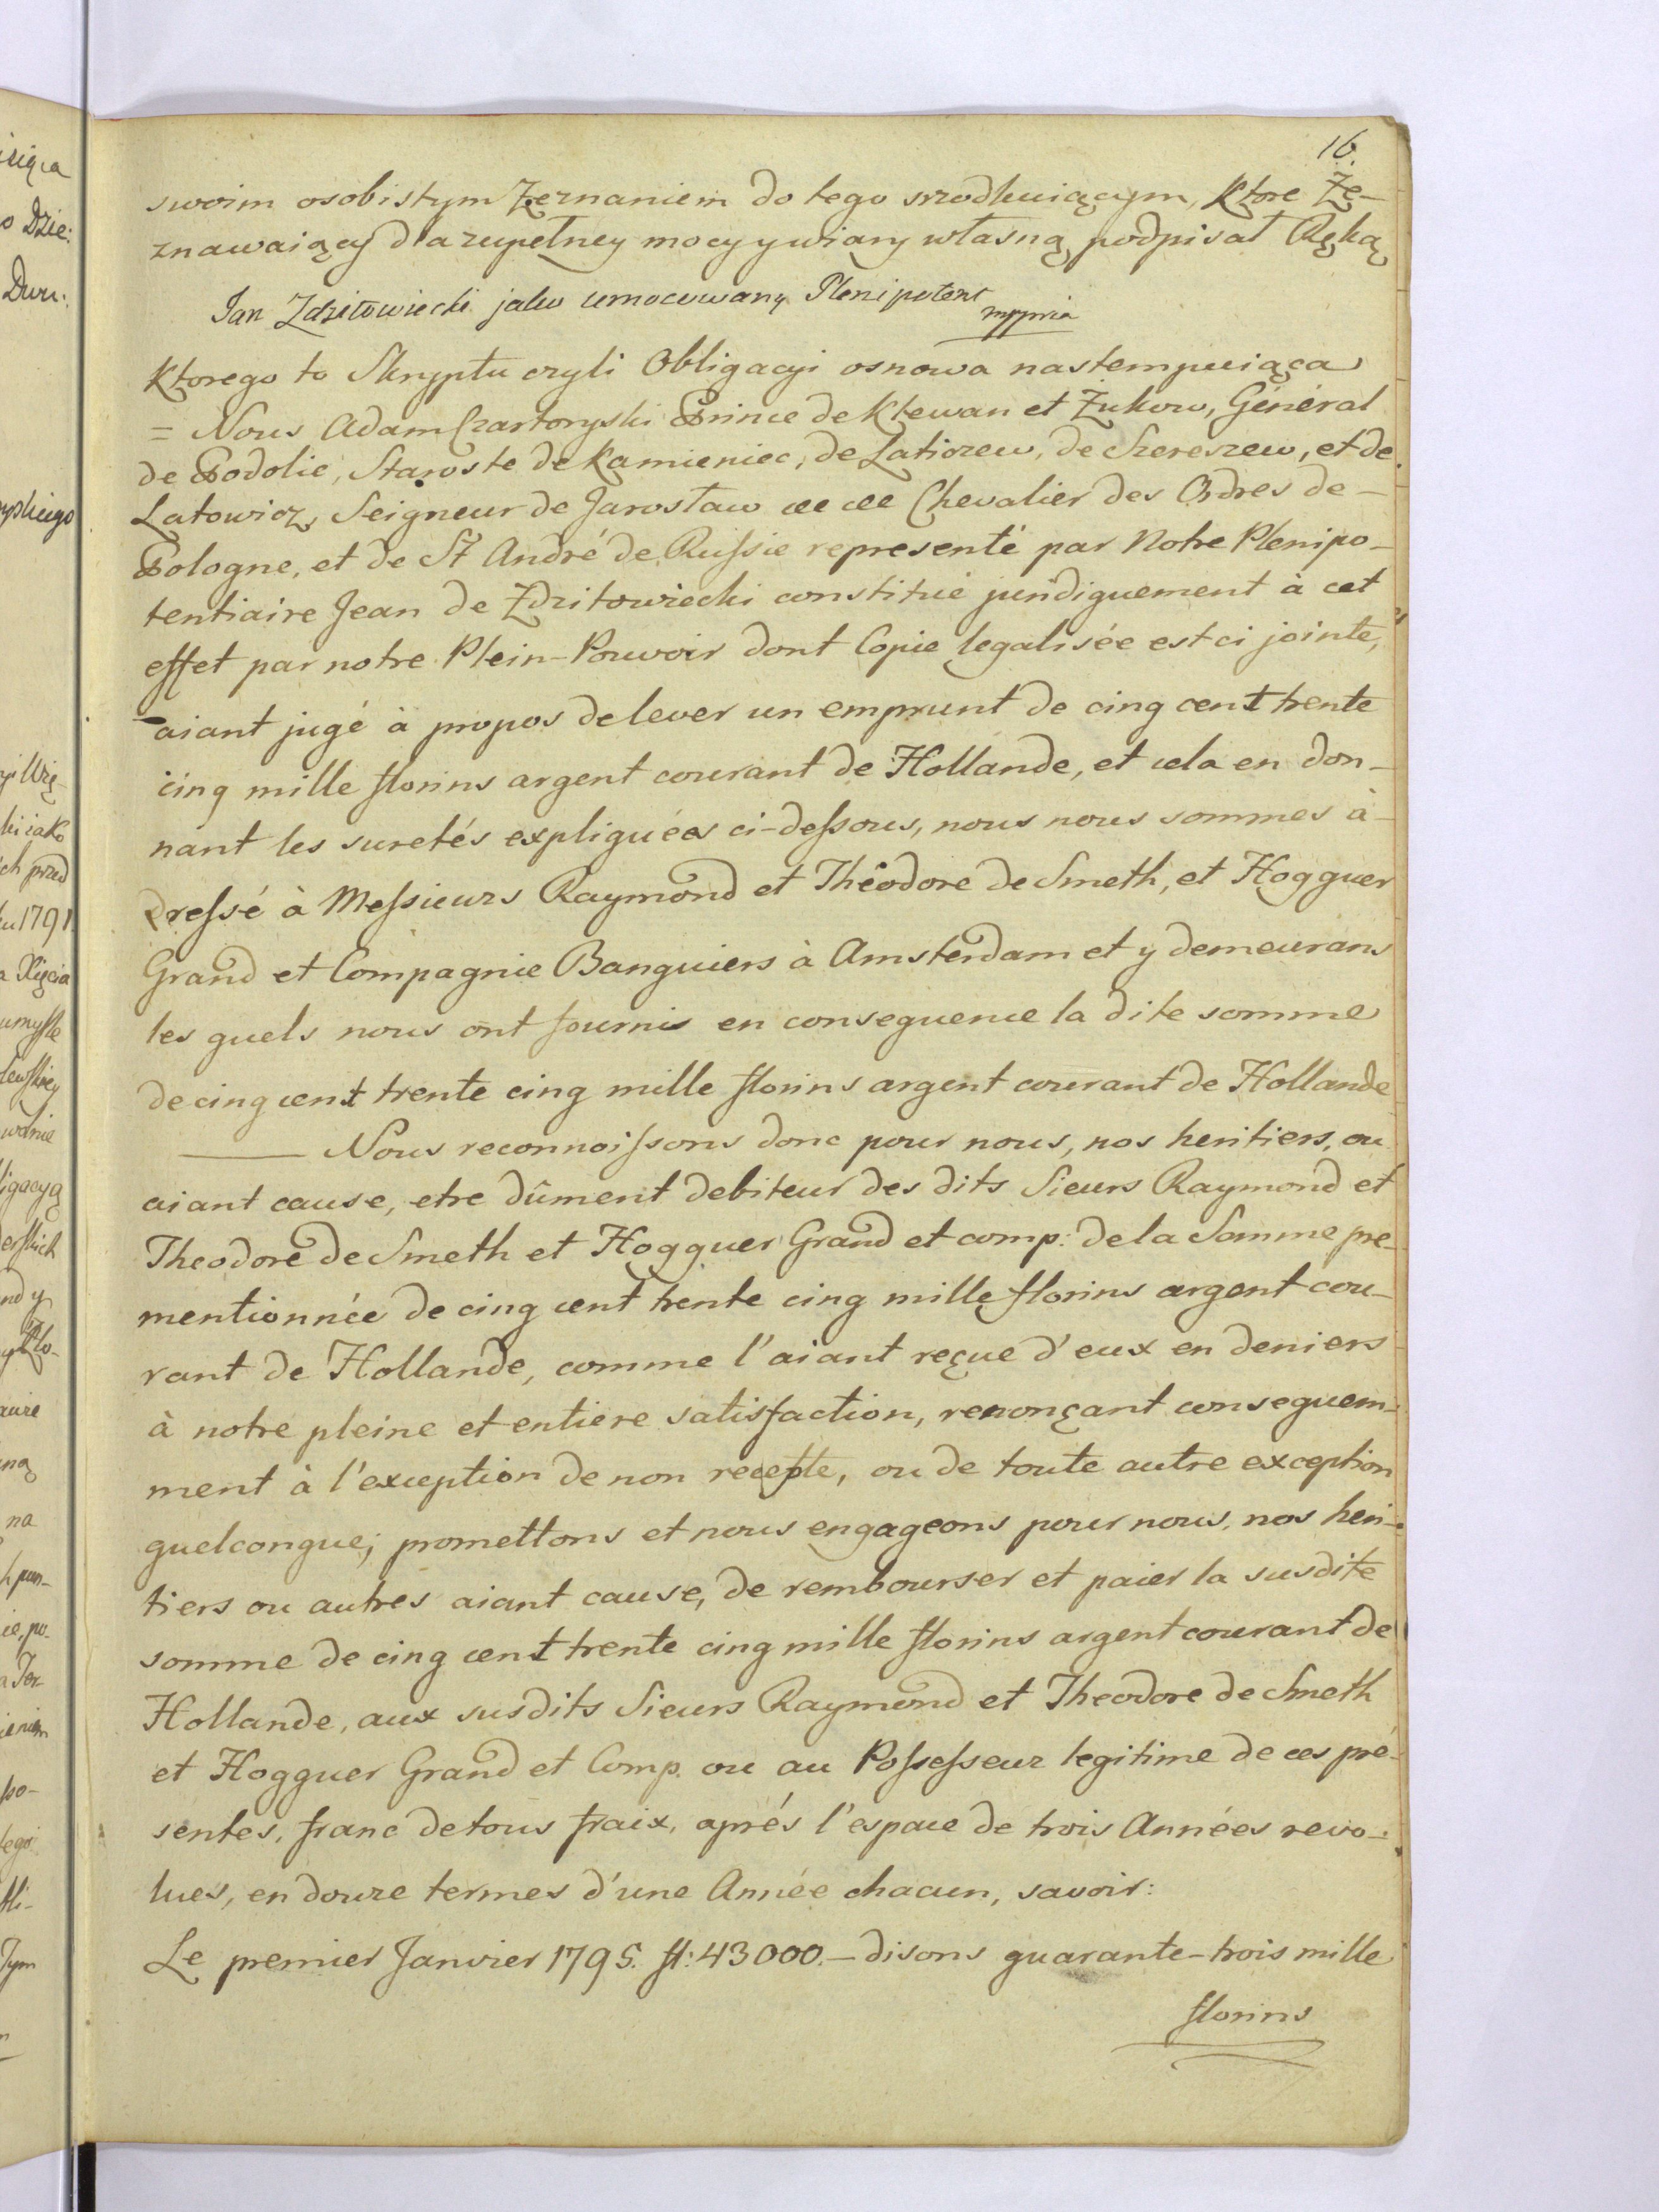 16.
swoim osobistym Zeznaniem do tego srzodkuiącym, Ktore Ze-
znawaiący dla zupełney mocy y wiary własną podpisał Ręką
Jan Zdzitowiecki jako umocowany Plenipotent
mppria
Ktorego to Skryptu czyli Obligacyi osnowa nastempuiąca
= Nous Adam Czartoryski Prince de Klewan et Żukow, Général
de Podolie, Staroste de Kamieniec, de Latiozew, de Szereszew, et de
Latowicz, Seigneur de Jarosław &c &c Chevalier des Ordres de
Pologne, et de St André de Russie representé par Notre Plenipo-
tentiaire Jean de Zdzitowiecki constitué juridiquement à cet
effet par notre Plein-Pouvoir dont Copie legalisée est ci jointe,
aiant jugé à propos de lever un emprunt de cinq cent trente
cinq mille florins argent courant de Hollande, et cela en don-
nant les suretés expliquées ci-dessous, nous nous sommes à-
dressé à Messieurs Raymond et Théodore de Smeth, et Hogguer
Grand et Compagnie Banquiers à Amsterdam et y demeurans
les quels nous ont fournis en consequence la dite somme
de cinq cent trente cinq mille florins argent courant de Hollande
Nous reconnoissons donc pour nous, nos heritiers, ou
aiant cause, etre dûment debiteur des dits Sieurs Raymond et
Theodore de Smeth et Hogguer Grand et comp: de la Somme pre-
mentionnée de cinq cent trente cinq mille florins argent cou-
rant de Hollande, comme l'aiant reçue d'eux en deniers
à notre pleine et entiere satisfaction, renonçant consequem-
ment à l'exception de non recepte, ou de toute autre exception
quelconque; promettons et nous engageons pour nous, nos heri-
tiers ou autres aiant cause, de rembourser et paier la susdite
somme de cinq cent trente cinq mille florins argent courant de
Hollande, aux susdits Sieurs Raymond et Theodore de Smeth
et Hogguer Grand et Comp. ou au Possesseur legitime de ces pré-
sentes, franc de tous fraix, aprés l'espace de trois Années revo-
lues, en douze termes d'une Année chacun, savoir:
Le premier Janvier 1795. fl: 43000.- disons quarante-trois mille
florins